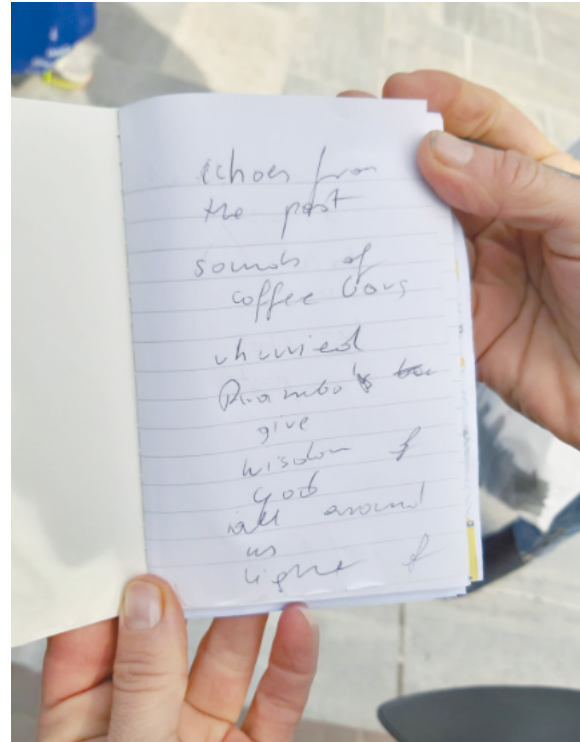 echoes from
the past
sounds of
coffee bars
unhurried
give
wisdom of
god
all around
us
light of